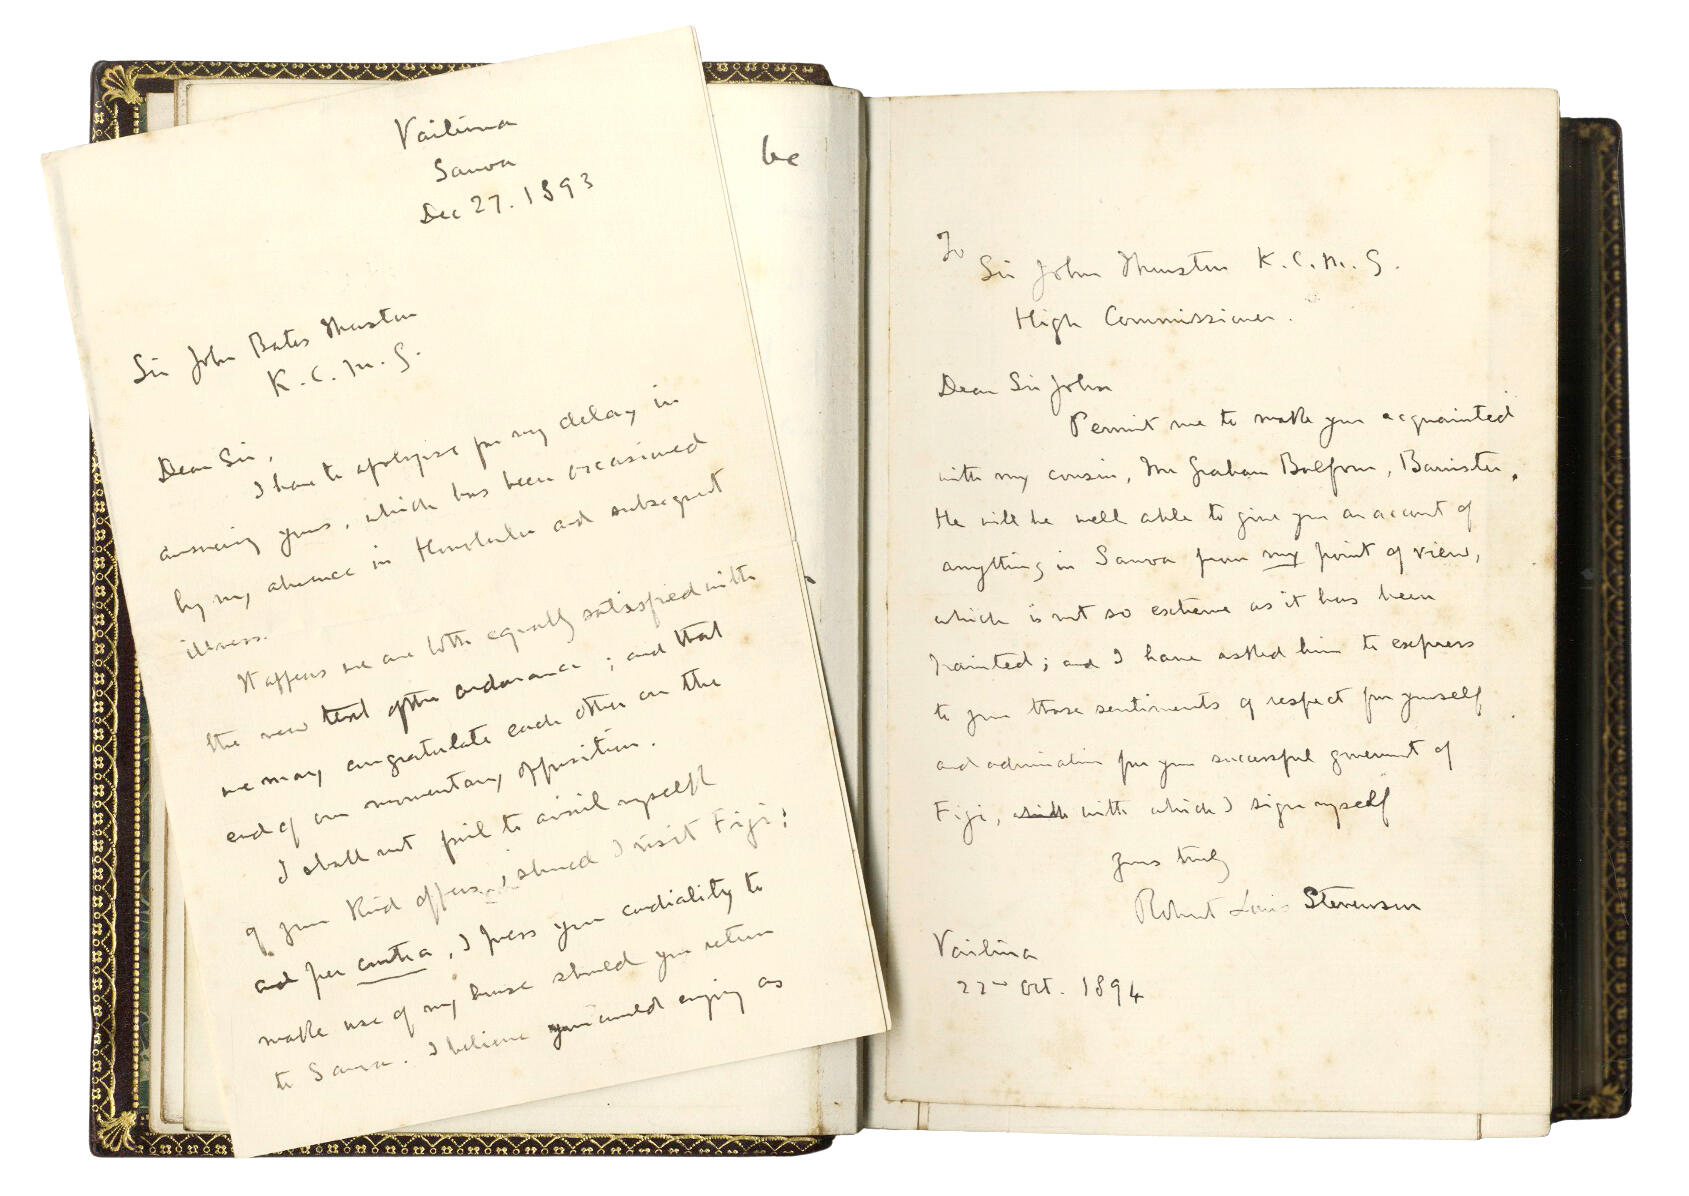 Vailima
Samoa
Dec 27. 1893
Sir John Bates Thurston
K.C.M.G.
Dear Sir,
I have to apologise for my delay in
answering yours, which has been occasioned
by my absence in Honolulu and subsequent
illness.
It appears we are both equally satisfied with
the new text of the ordonance; and that
we may congratulate each other on the
end of our momentary opposition.
I shall not fail to avail myself
of your kind offers, should I visit Fiji;
and per contra, I press you cordiality to
make use of my house should you return
to Samoa. I believe you could enjoy as
be
To
Sir John Thurston K.C.M.G.
High Commissioner.
Dear Sir John
Permit me to make you acquainted
with my cousin, Mr Graham Balfour, Barrister.
He will be well able to give you an account of
anything in Samoa from my point of view,
which is not so extreme as it has been
painted; and I have asked him to express
to you those sentiments of respect for yourself
and admiration for your successful government of
Fiji, with with which I sign myself
Yours truly
Robert Louis Stevenson
Vailima
22nd Oct. 1894